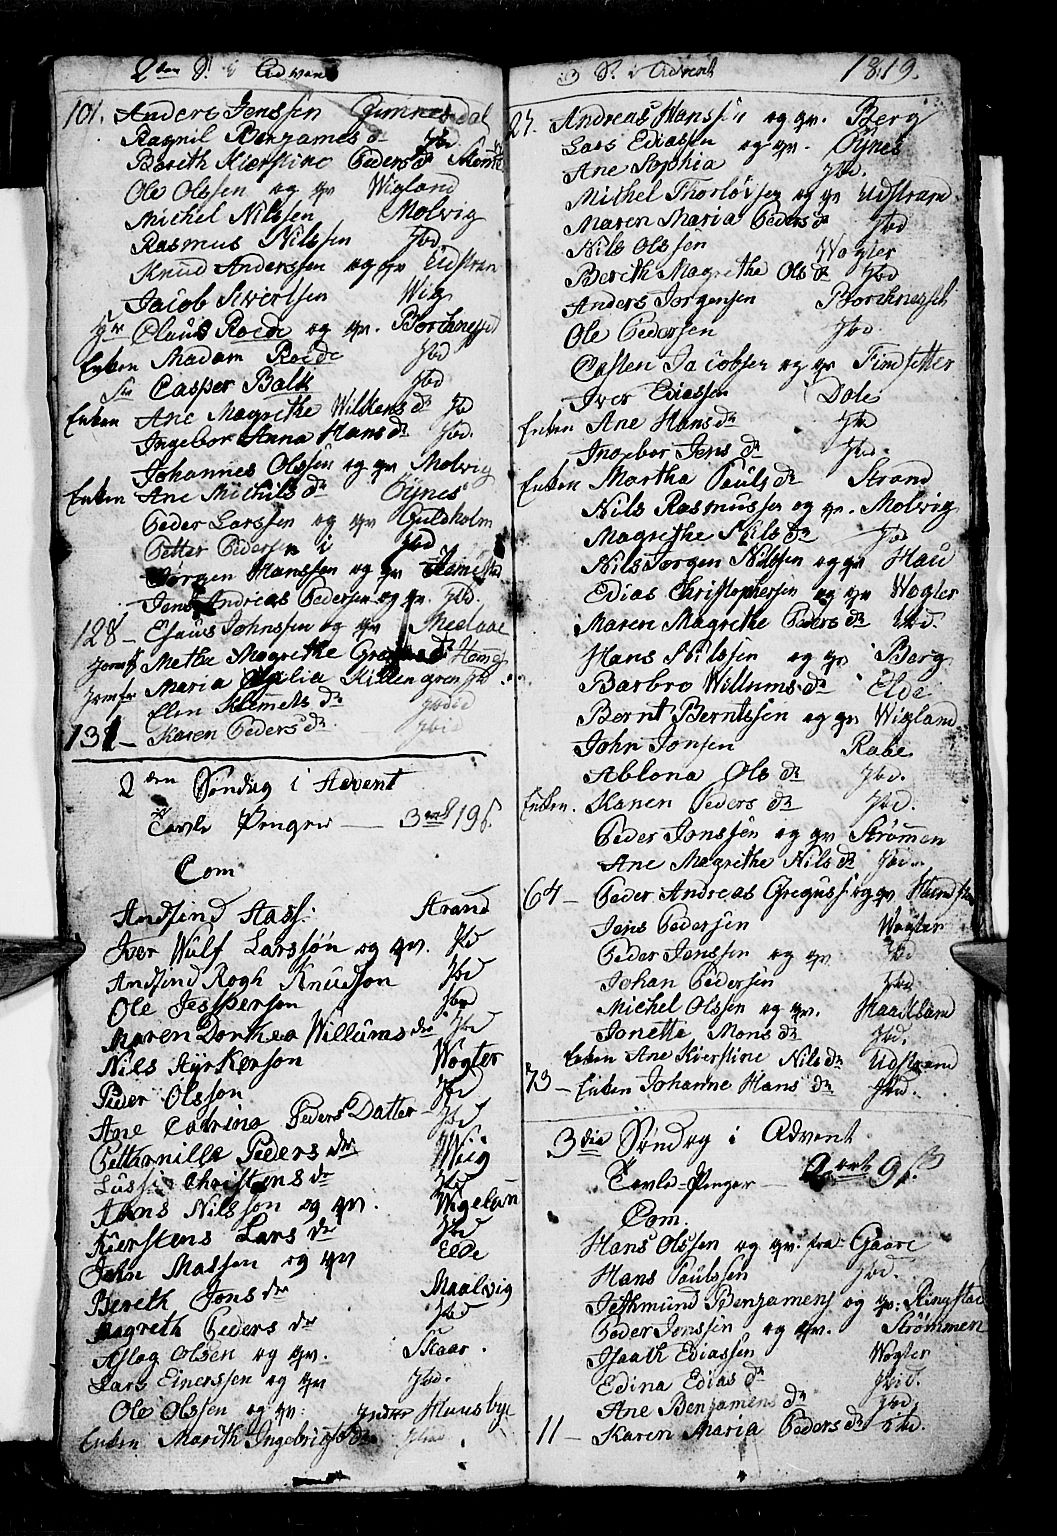 2den S. i Advent
101. Anders Jenssen Gimnesdal
Ragnil Benjames dr Ibd.
Bereth Kierstine Peders dr
Ole Olssen og qv Wigland
Michel Nilssen Molvig
Rasmus Nilssen Ibd.
Knud Anderssen og qv Udstran
Jacob Siverlsen Wig
Hr Claus Roede og qv. Borchnessed
Enken Madam Roede Ibd
Casper Balk Ibd
Enken Ane Magrethe Wilkens dr Ibd
Ingebor Anna Hans dr Ibd.
Johannes Olssen og qv Molvig
Enken Ane Michils dr Öynes
Peder Larssen og qv Guldholm
Petter Pedersen i Ibd
Jørgen Hanssen og qv
Jens Andreas Pedersen og qv. Ibd.
128 – Esaus Johnssen og qv Medaae
Jomfr Methe Magrethe
Jomfr Maria
Elen Klemets dr Ibid
131 – Karen Peders dr Ibid
2den Søndag i Advent
Tavle Penger — 3 ort 19 s.
Com
Andsind Aass: Strand
Iver Wulf Larssøn og qv. Ibd
Andsind Rogh Knudson Ibd
Ole Jespersen Ibd
Maren Dorthea Willums dr Ibd
Nils Kyrkerson Wogter
Peder Olsson Ibd
Ane Catrina Peders Datter Ibd
Petternille Peders dr Wiig
Lussie Christens dr Ibd
Hans Nilsson og qv. Wigelun
Kierstens Lars dr Ibd
John Massen og qv Elde
Bereth Jons dr Maalvig
Magreth Peders dr Ibd
Aslag Olsen og qv. Skaar.
Lars Einerssen og qv Ibd.
Ole Olssen og qv: Indre Huusbye
Enken Marith Ingebrigts dr Ibid
3 S. i Advent 1819.
27. Andreas Hanssen og qv. Berg
Lars Ediassen og qv. Öynes
Ane Sophia Ibd.
Michel Thorlövsen og qv Udstrand
Maren Maria Peders dr Ibd
Nils Olssen Wogter
Bereth Magrethe Ols dr Ibd
Anders Jorgensen Borchnessed
Ole Pedersen Ibd
Casten Jacobsen og qv Findsetter
Iver Ediassen Dale
Enken Ane Hans dr Ibd
Ingebor Jens dr Ibd.
Enken Martha Pauls dr Strand
Nils Rasmussen og qv. Molvig
Magrethe Nils dr Ibd
Nils Jorgen Nilssen og qv Hau
Edias Christophersen og qv Wogter
Maren Magrethe Peders dr Ibd.
Hans Nilssen og qv Berg
Barbro Willums dr Elde
Bernt Berntssen og qv Wigland
John Jonsen Rabe
Ablona Ols dr Ibd.
Enken. Karen Peders dr Ibd.
Peder Jonssen og qv Strømmen
Ane Magrethe Nils dr Ibd.
64 – Peder Andreas Greguss: og qv
Jens Pedersen Wogter
Peder Jenssen og qv Ibd
Johan Pedersen Ibd
Michel Olssen og qv. Haadland
Janette Mons dr Ibd.
Enken Ane Kierstine Nils dr Udstrand
73 – Enken Johanne Hans dr Ibd.
3die Søndag i Advent
Tavle-Penger — 2 ort 9 s.
Com.
Hans Olssen og qv. fra Gaare
Hans Paulssen Ibd.
Jethmund Benjamens og qv: Ringstad
Peder Jonssen og qv. Strømmen
Isaath Ediassen Wogter
Edina Edias dr Ibid.
Ane Benjamens dr Ibd.
11 – Karen Maria Peders dr Ibd.